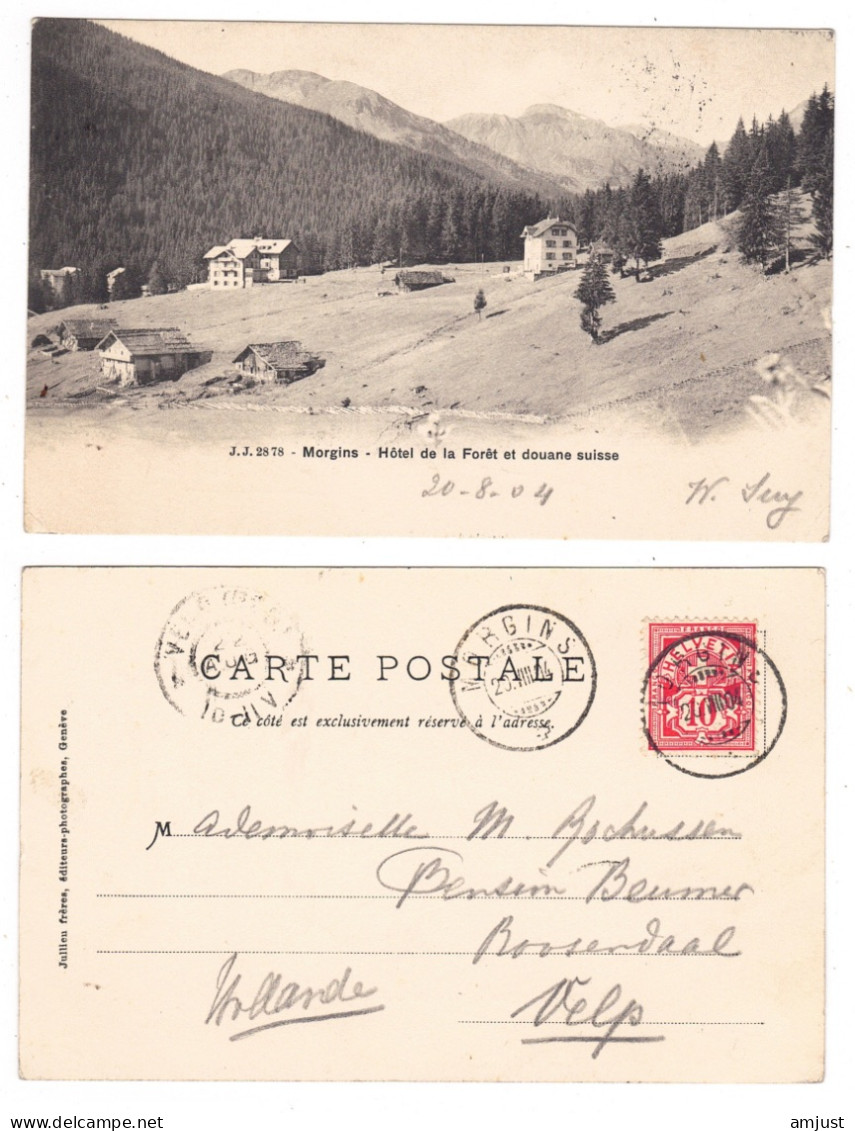 J.J. 2878 - Morgins - Hôtel de la Forêt et douane suisse
20-8-04
W.
22
AUG
CARTE POSTALE
MORGINS
20.VIII.04
FRANCO
HELVETIA
10
Ce côté est exclusivement réservé à l'adresse.
Mademoiselle M. Rochussen
Pension Beumer
Roosendaal
Hollande
Velp
Jullien frères, éditeurs-photographes, Genève
amjust